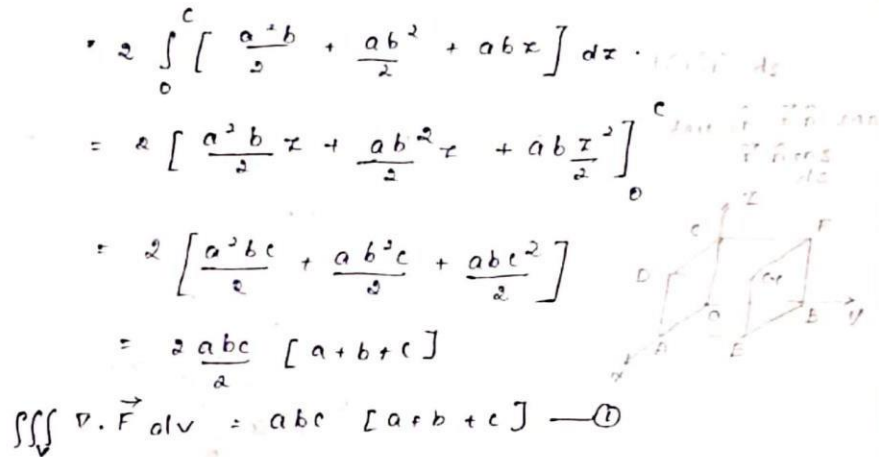 = 2 ∫₀ᶜ [ a²b/2 + ab²/2 + abz ] dz .
= 2 [ a²b/2 z + ab²/2 z + ab z²/2 ]₀ᶜ
= 2 [ a²bc/2 + ab²c/2 + abc²/2 ]
= 2 abc/2 [a+b+c]
∭ᵥ ∇. F⃗ dv = abc [a+b+c] —①
z
C F
D G
O B y
A E
x